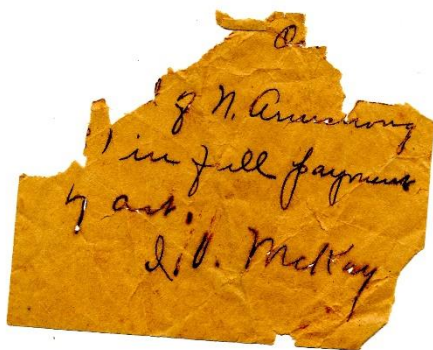 of N. Armstrong
in full payment
of act.
McKay